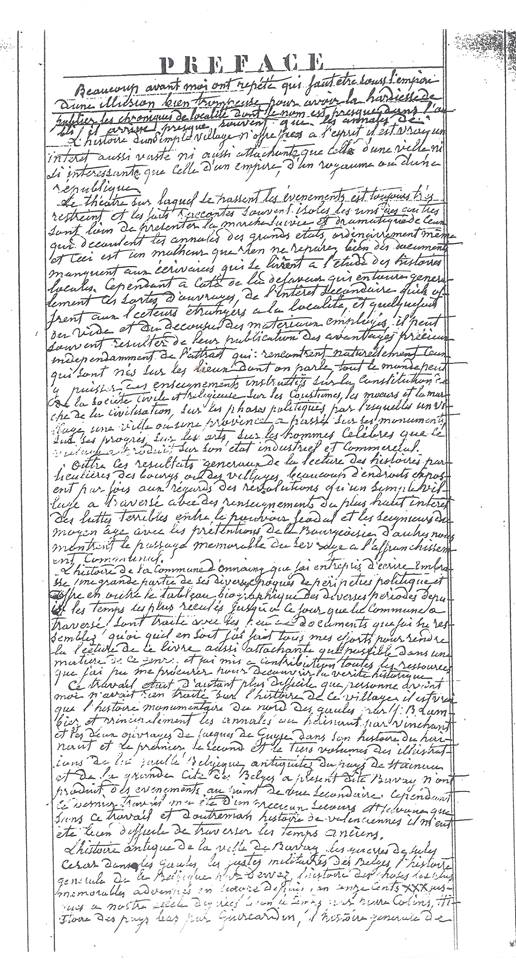 PREFACE
Beaucoup avant moi ont repété qui faut etre sous l'empire
d'une illusion bien trompeuse pour avoir la hardiesse de
publier les chroniques de localité dont le nom est presque dans l'ou
bli, il arrive presque souvent que les annales de
L'histoire d'un simple village n'offre pas a l'esprit il est vrai un
interet aussi vaste ni aussi attachante que celle d'une ville ni
si interessante que celle d'un empire, d'un royaume ou d'une
république
Le théatre sur laquel se passent les évenements est toujours très
restreint et les faits racontés souvent isolés les uns des autres
sont loin de presenter la marche suivie et dramatique de ceux
que deroulent les annales des grands états, ordinairement même
et ceci est un malheur que rien ne repare, bien des documents
manquent aux écrivains qui se livrent a l'étude des histoires
locales. Cependant a coté de la defaveur qui entoure genera
lement ces sortes d'ouvrages, de l'interet secondaire qu'ils of
frent aux lecteurs étrangers a la localité, et quelquefois
du vide et du decousu des materiaux employés, il peut
souvent resulter de leur publication des avantages précieux
independamment de l'attrait qui: rencontrent naturellement ceux
qui sont nés sur les lieux dont on parle, tout le monde peut
y puiser des enseignements instructifs sur la constitution
de la société civile et religieuse sur les coustumes, les mœurs et la mar
che de la civilisation, sur les phases politiques par lesquelles un vi
llage une ville ou une province a passée sur ses monuments
sur ses progres, sur les arts sur les hommes célèbres que le
a produit sur son état industriel et commercial.
Outre ces resultats generaux de la lecture des histoires par
ticulieres des bourgs ou des villages, beaucoup d'endroits expos
ent par fois aux regards des revolutions qu'un simple vil
lage a traversé avec des renseignements du plus haut interet
des luttes terribles entre le pouvoir féodal et les seigneurs du
moyen age avec les prétentions de la Bourgeoisie d'autres nous
montrent le passage memorable du servage a l'affranchissem
ent Communal.
L'histoire de la Commune d'onnaing que j'ai entrepris d'écrire embra
sse une grande partie de ses diverses époques de peripeties politique et
offre en outre le tableau biographique des diverses periodes depu
is les temps les plus reculés jusqu'a ce jour que la Commune a
traversé sont traité avec les documents que j'ai ras
semblés quoi qu'il en soit j'ai fait tous mes efforts pour rendre
la lecture de ce livre aussi attachante que possible dans une
matiere de ce genre et j'ai mis a contribution toutes les ressources
que j'ai pu me procurer pour decouvrir la verité historique
Ce travail était d'autant plus difficile que personne avant
moi n'avait rien traité sur l'histoire de ce village il est vrai
que l'histoire monumentaire du nord des gaules par
et principalement les annales du hainaut par Vinchant
et les deux ouvrages de Jacques de Guyse dans son histoire du hai
naut et le premier le second et le tiers volumes des illustrat
ions de la gaulle Belgique, antiquités du pays de Hainau
et de la grande cité des Belges a present dite Bavay n'ont
produit des evenements au point de vue secondaire Cependant
ce dernier travail m'a été d'un precieux secours et j'avoue que
sans ce travail et d'outreman histoire de valenciennes il m'eut
été bien difficile de traverser les temps anciens.
L'histoire antique de la ville de Bavay, les guerres de jules
Cesar dans les gaules, les fastes militaires des Belges, l'histoire
generale de la Belgique par Dewez, l'histoire des choses les plus
memorables advenues en europe depuis l'an onze cents XXX jus
ques a nostre siecle digerées selon le temps par pierre Colins, Hi
stoire des pays bas par Guicciardin, l'histoire generale de